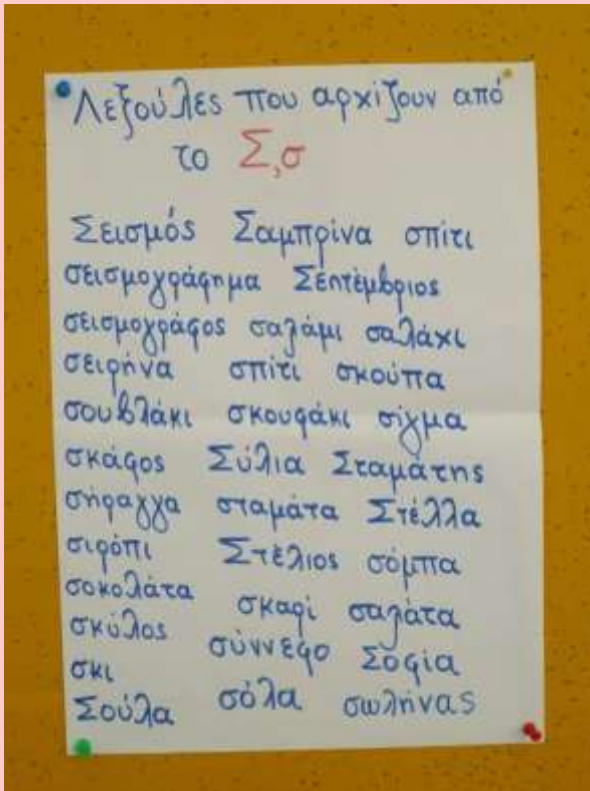 Λεξούλες που αρχίζουν από
το Σ,σ
Σεισμός Σαμπρίνα σπίτι
σεισμογράφημα Σεπτέμβριος
σεισμογράφος σαλάμι σαλάχι
σειρήνα σπίτι σκούπα
σουβλάκι σκουφάκι σίγμα
σκάφος Σύλια Σταμάτης
σήραγγα σταμάτα Στέλλα
σιρόπι Στέλιος σόμπα
σοκολάτα σκαρί σαλάτα
σκύλος σύννεφο Σοφία
σκι
Σούλα σόλα σωλήνας